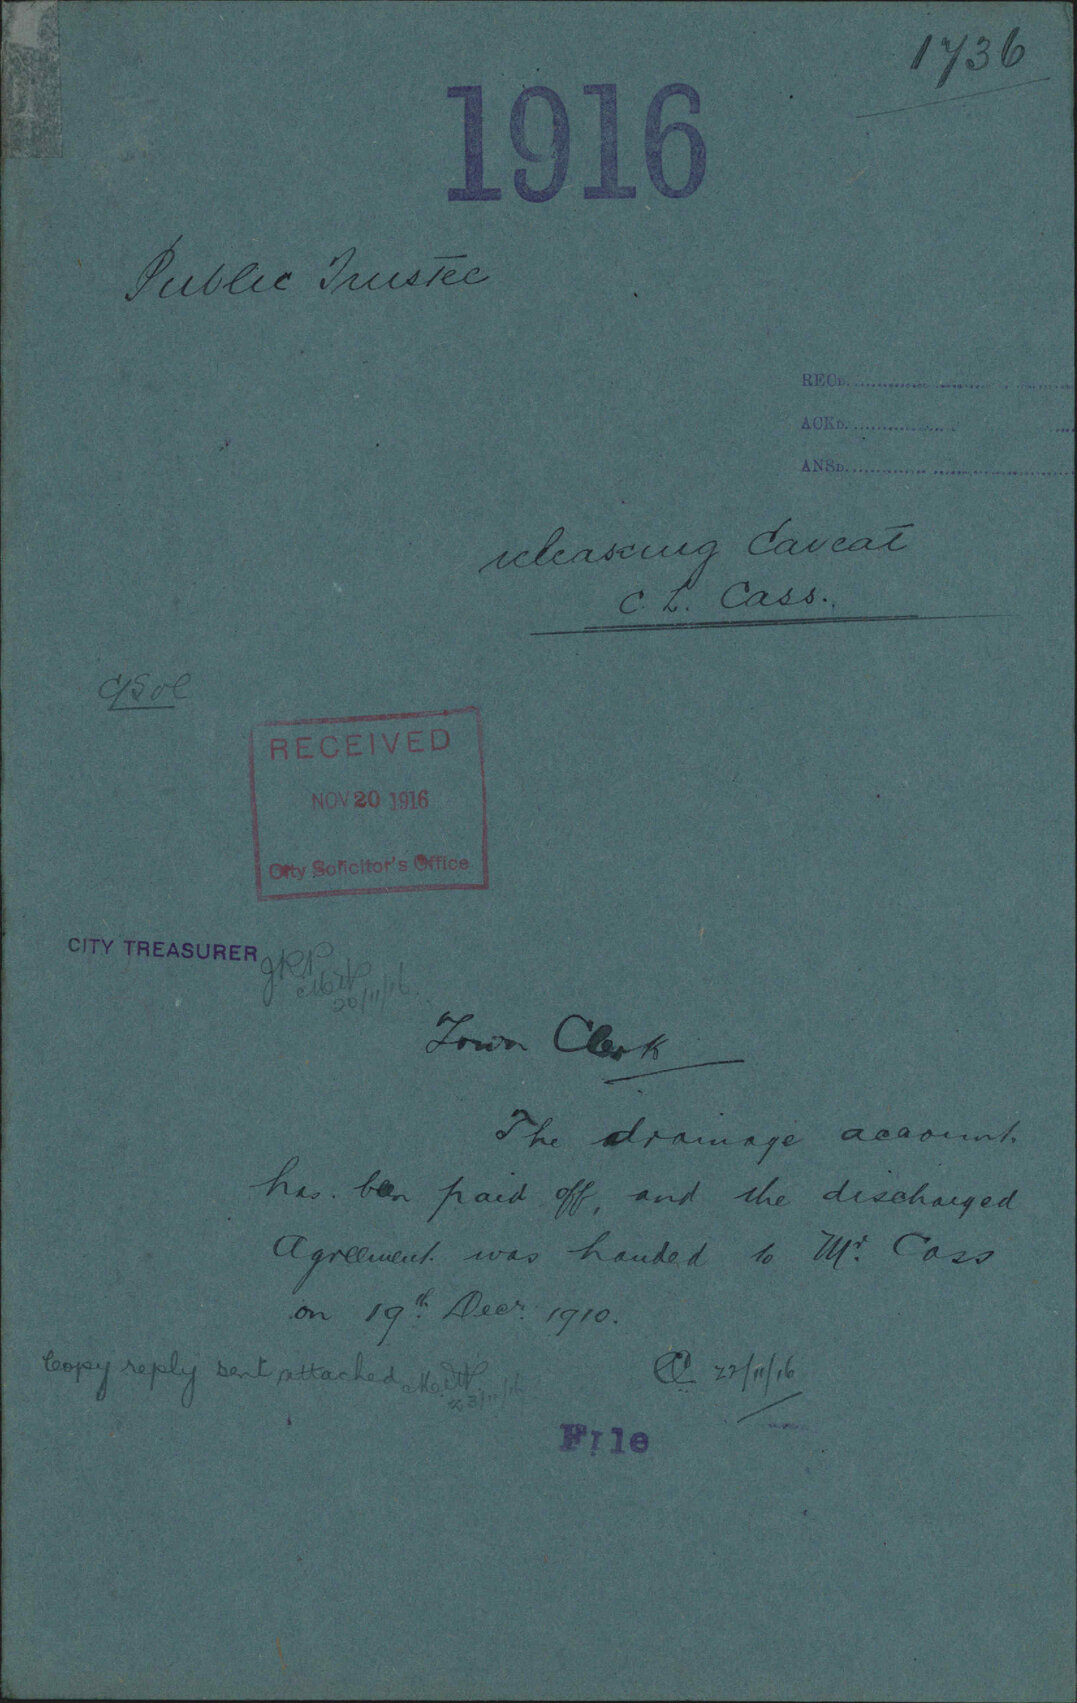 1736
1916
Public Trustee
RECD.
ACKD.
ANSD.
releasing Caveat
C. L. Cass.
C/Sol
RECEIVED
NOV 20 1916
City Solicitor's Office
CITY TREASURER
20/11/16.
Town Clerk
The drainage account
has been paid off, and the discharged
Agreement was handed to Mr. Cass
on 19th Decr. 1910.
Copy reply sent attached
23/11/16
22/11/16
File